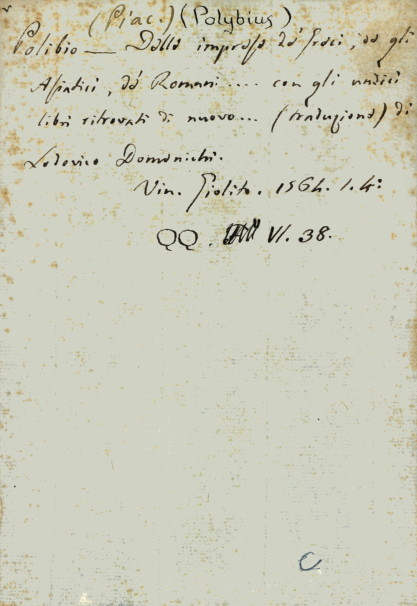 (Piac.) (Polybius)
Polibio — Delle imprese de' Greci, de gli
Asiatici, de' Romani .... con gli undici
libri ritrovati di nuovo... (traduzione) di
Lodovico Domenichi.
Vin. Giolito. 1564. 1. 4:
QQ. VI. 38.
C